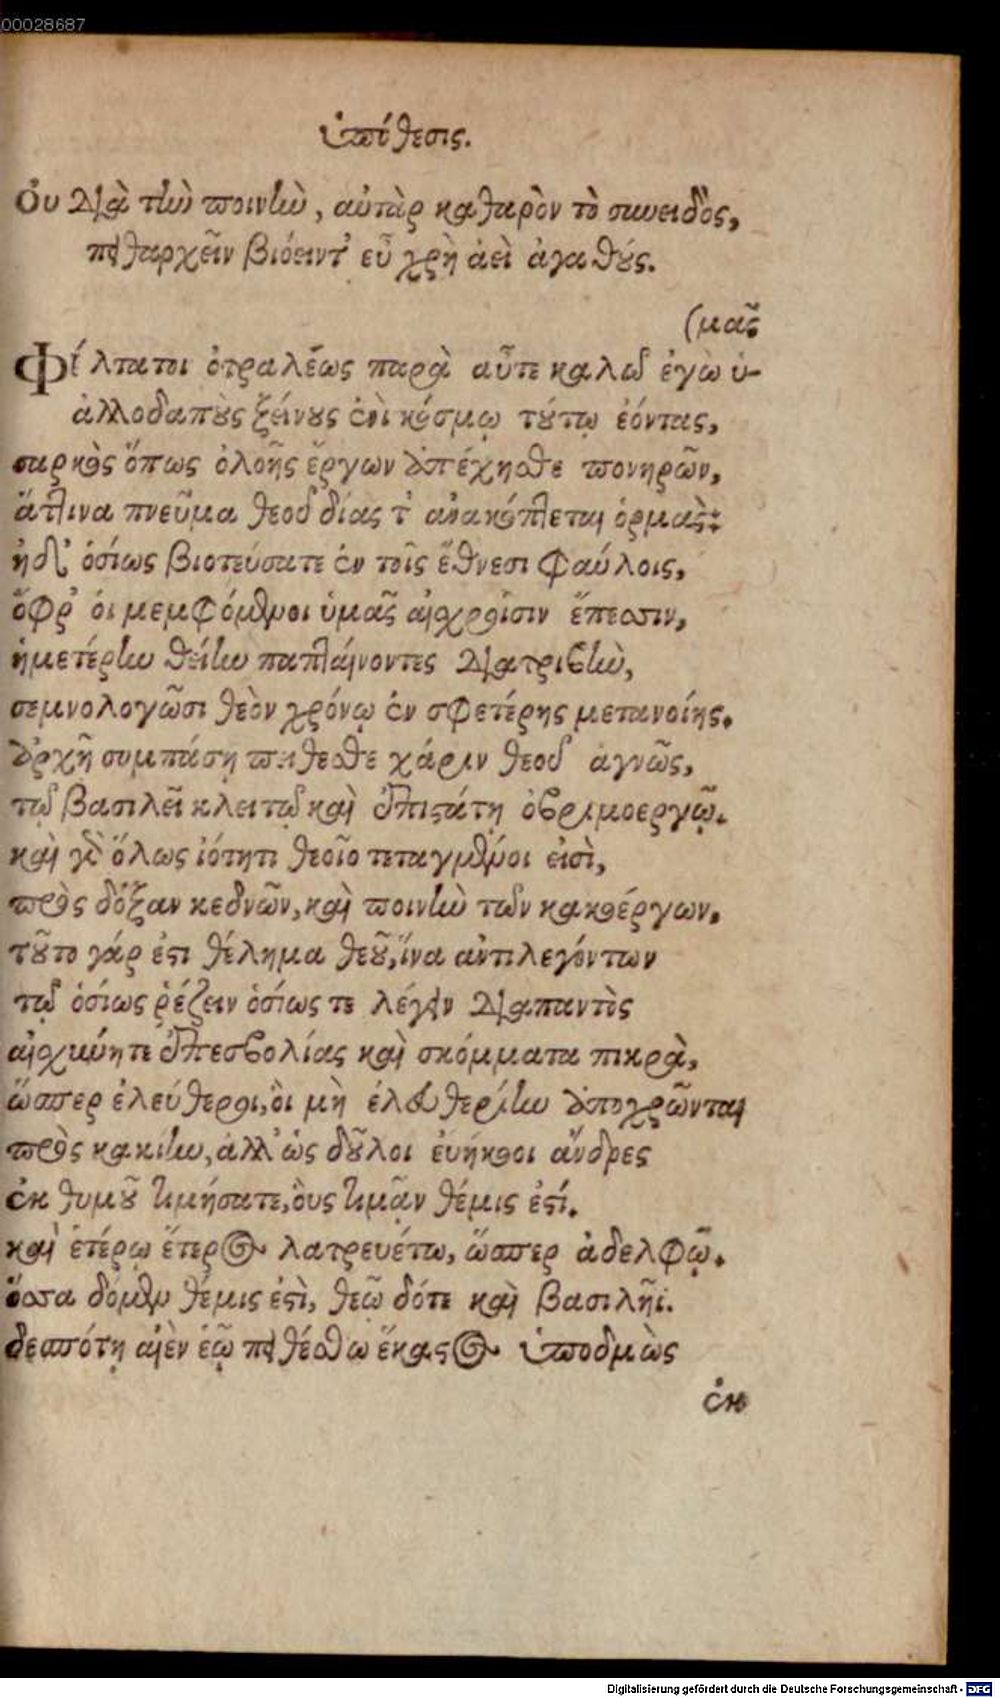 00028687
ὑπόθεσις.
Οὐ διὰ τὴν ποινὴν, αὐτὰρ καθαρὸν τὸ συνειδὸς,
πειθαρχεῖν βιόειντ' εὖ χρὴ ἀεὶ ἀγαθούς.
(μᾶς
Φίλτατοι ὀτραλέως παρὰ αὖτε καλῶ ἐγὼ ὑ-
ἀλλοδαποὺς ξείνους ἐνὶ κόσμῳ τούτῳ ἐόντας,
σαρκὸς ὅπως ὀλοῆς ἔργων ἀπέχησθε πονηρῶν,
ἅττινα πνεῦμα θεοῦ δίας τ' ἀνακόπτεται ὁρμάς:
ἠδ' ὁσίως βιοτεύσατε ἐν τοῖς ἔθνεσι φαύλοις,
ὄφρ' οἱ μεμφόμενοι ὑμᾶς αἰσχροῖσιν ἔπεσσιν,
ἡμετέρην θείην παπταίνοντες διατριβὴν,
σεμνολογῶσι θεὸν χρόνῳ ἐν σφετέρης μετανοίης.
ἀρχῇ συμπάσῃ πείθεσθε χάριν θεοῦ ἁγνῶς,
τῷ βασιλεῖ κλειτῷ καὶ ἐπιστάτῃ ὀβριμοεργῷ.
καὶ γὰρ ὅλως ἰότητι θεοῖο τεταγμένοι εἰσὶ,
πρὸς δόξαν κεδνῶν, καὶ ποινὴν τῶν κακοέργων.
τοῦτο γάρ ἐστι θέλημα θεοῦ, ἵνα ἀντιλεγόντων
τῷ ὁσίως ῥέζειν ὁσίως τε λέγειν διαπαντὸς
αἰσχύνητε ἐπεσβολίας καὶ σκόμματα πικρὰ,
ὥσπερ ἐλεύθεροι, οἳ μὴ ἐλευθερίην ἀποχρῶνται
πρὸς κακίην, ἀλλ' ὡς δοῦλοι εὐήκοοι ἄνδρες
ἐκ θυμοῦ τιμήσατε, οὓς τιμᾷν θέμις ἐστί.
καὶ ἑτέρῳ ἕτερος λατρευέτω, ὥσπερ ἀδελφῷ.
ὅσσα δόμεν θέμις ἐστὶ, θεῷ δότε καὶ βασιλῆϊ.
δεσπότῃ αἰὲν ἑῷ πειθέσθω ἕκαστος ὑποδμὼς
ἐκ
Digitalisierung gefördert durch die Deutsche Forschungsgemeinschaft - DFG